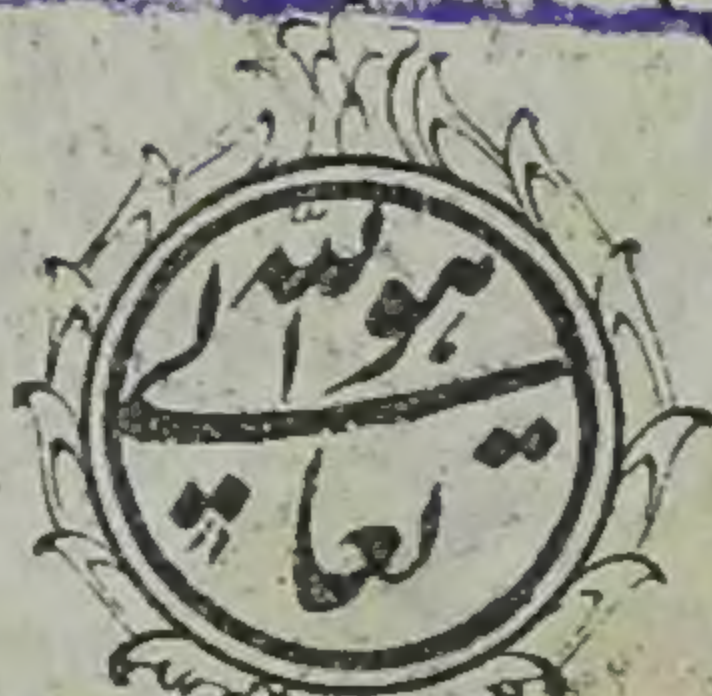 هو الله
تعالی